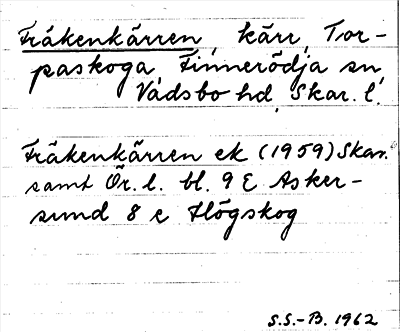 Fräkenkärren, kärr, Tor-
paskoga, Finnerödja sn,
Vadsbo hd, Skar. l.
Fräkenkärren ek (1959) Skar.
samt Ör. l. bl. 9 E Asker-
sund 8 e Högskog
S.S.-B. 1962